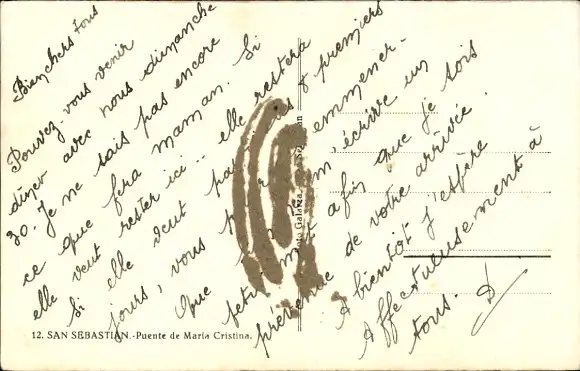 Bien chers tous
Pouvez-vous venir
dîner avec nous dimanche
30. Je ne sais pas encore
ce que fera maman. Si
elle veut rester ici -- elle restera
Si elle veut 8 premiers
jours, vous emmener-
Que m'écrive un
petit mot afin que je sois
prévenue de votre arrivée.
A bientôt j'espère
Affectueusement à
tous. D
12. SAN SEBASTIÁN.-Puente de María Cristina.
Foto Galarza. San Sebastián